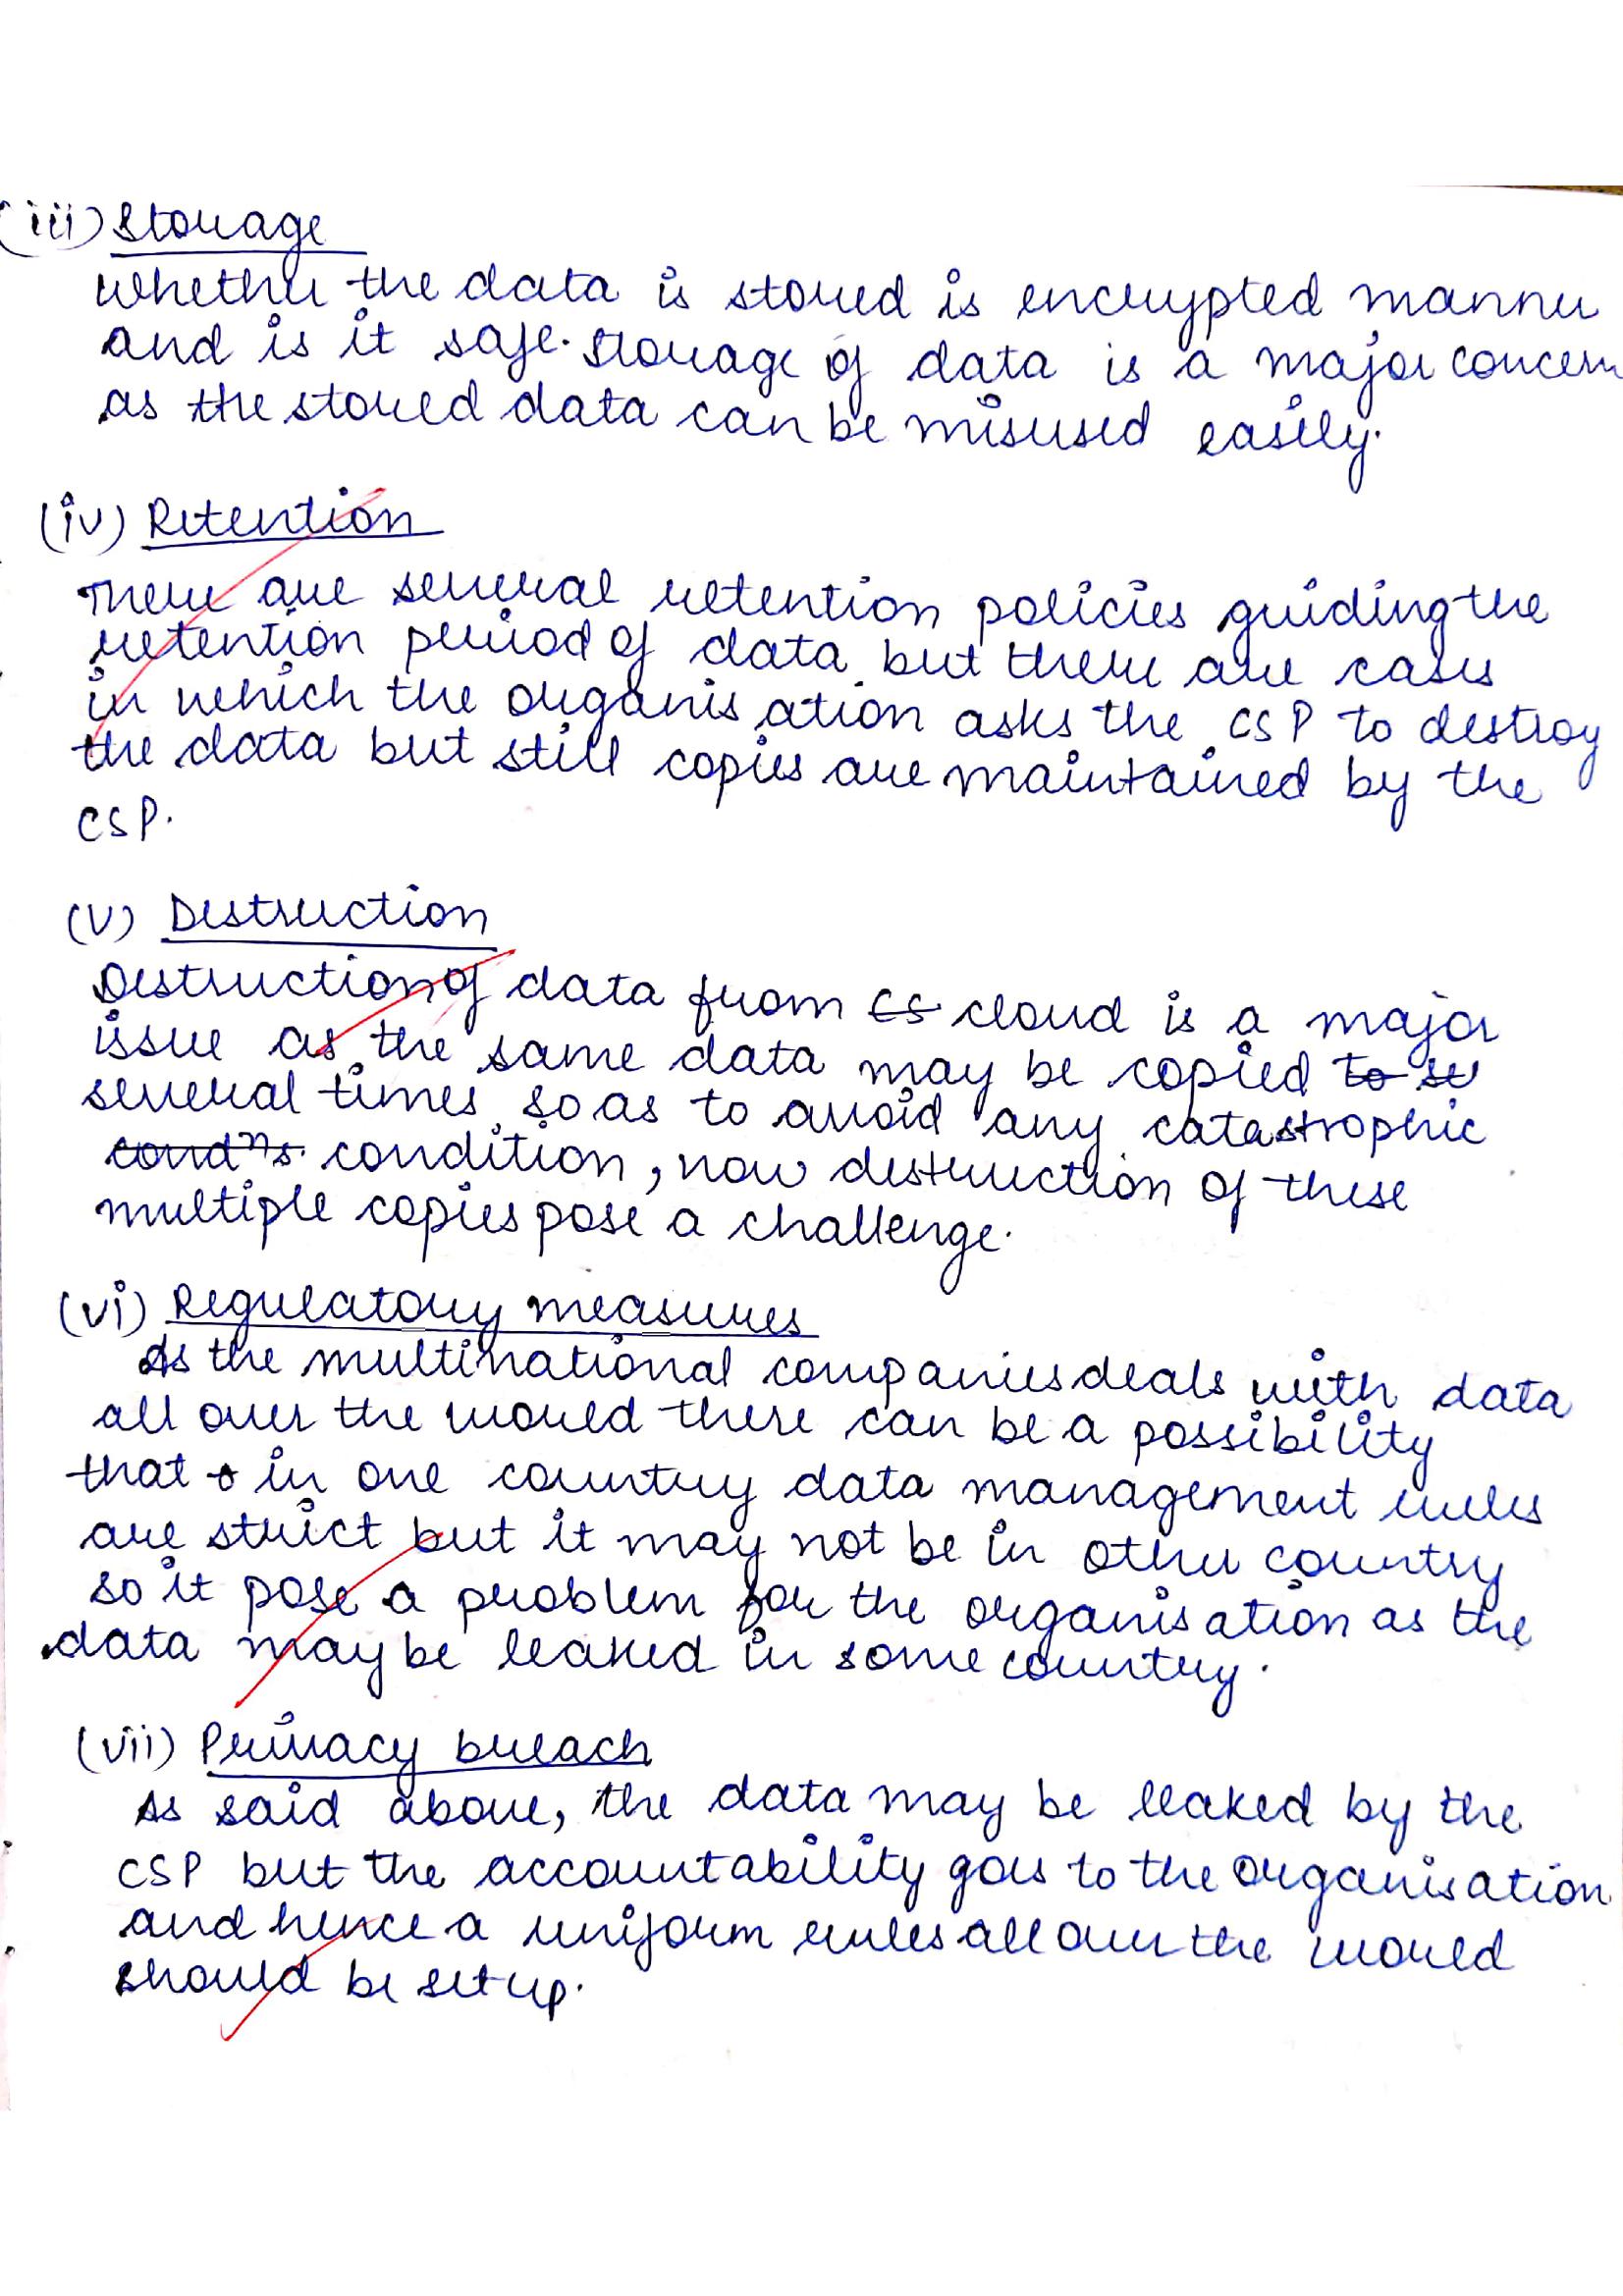 (iii) Storage
Whether the data is stored is encrypted manner
and is it safe. Storage of data is a major concern
as the stored data can be misused easily.
(iv) Retention
There are several retention policies guiding the
retention period of data but there are cases
in which the organisation asks the CSP to destroy
the data but still copies are maintained by the
CSP.
(v) Destruction
Destruction of data from cs cloud is a major
issue as the same data may be copied to se
several times so as to avoid any catastrophic
condns. condition, now destruction of these
multiple copies pose a challenge.
(vi) Regulatory measures
As the multinational companies deals with data
all over the world there can be a possibility
that in one country data management rules
are strict but it may not be in other country
so it pose a problem for the organisation as the
data may be leaked in some country.
(vii) Privacy breach
As said above, the data may be leaked by the
CSP but the accountability goes to the organisation
and hence a uniform rules all over the world
should be set up.